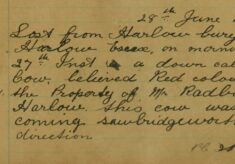 28th June
Lost from Harlow bury
Harlow Essex, on morn
27th Inst is a down cal
Cow, believed Red colou
the Property of Mr Radb
Harlow. This cow was
coming Sawbridgewort
direction